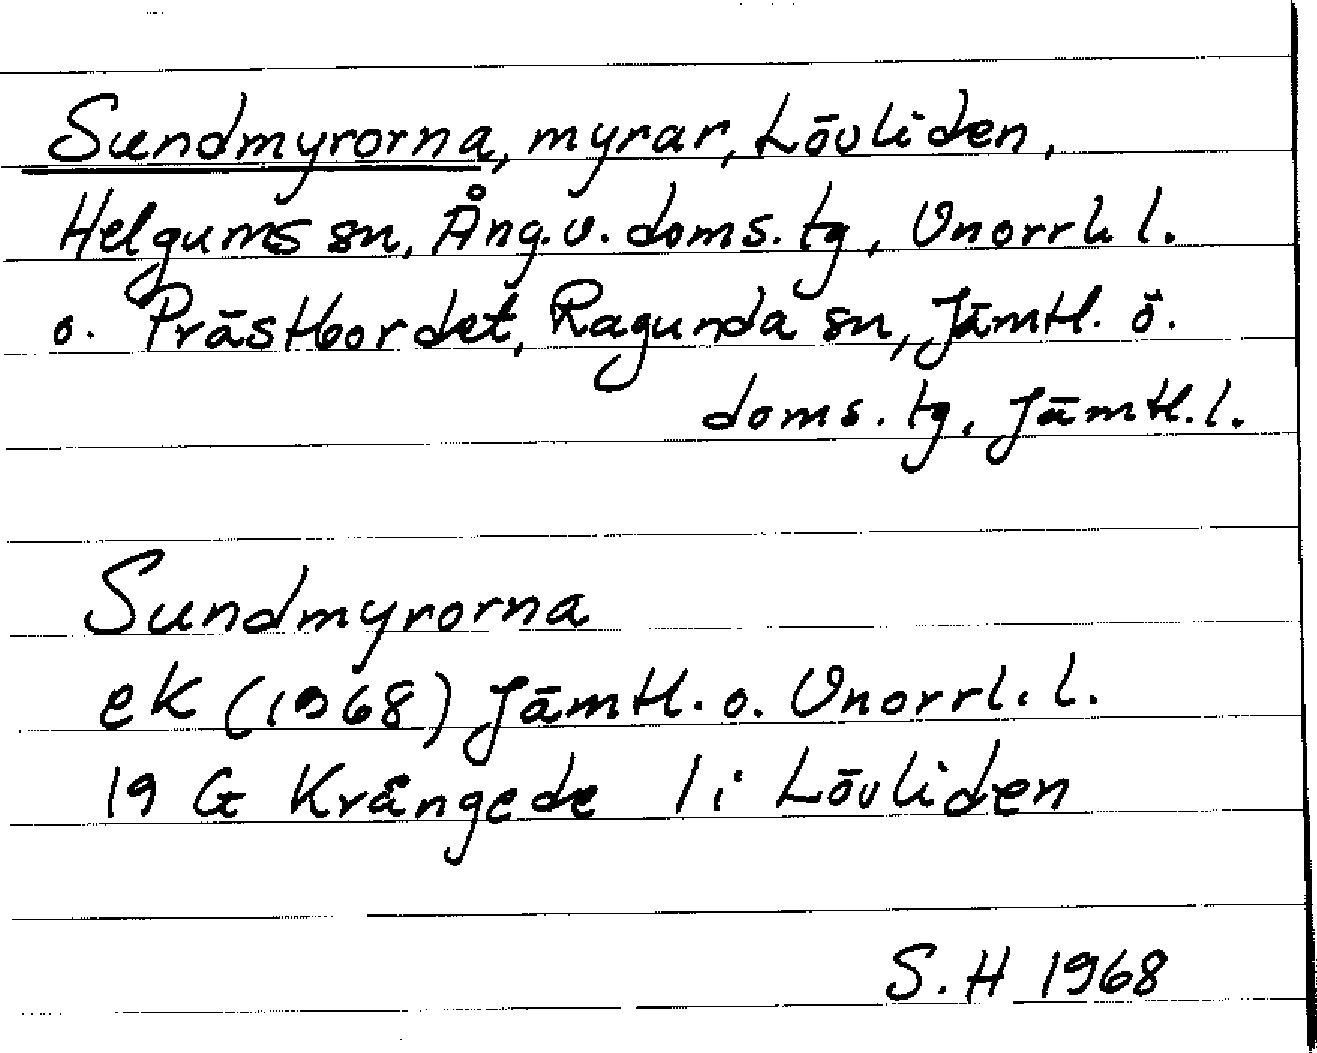 Sundmyrorna, myrar, Lövliden,
Helgums sn, Ång. v. doms. tg, Vnorrl. l.
o. Prästbordet, Ragunda sn, Jämtl. ö.
doms. tg, Jämtl. l.
Sundmyrorna
ek (1968) Jämtl. o. Vnorrl. l.
19 G Krångede 1 i Lövliden
S. H 1968